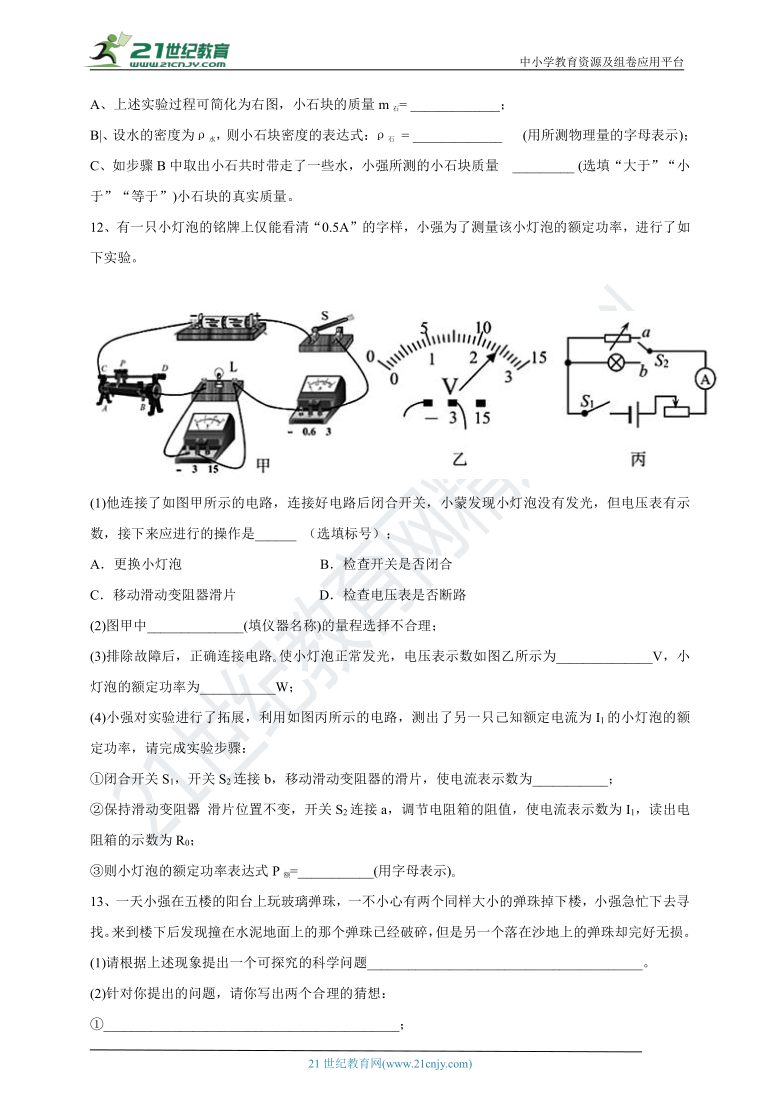 21世纪教育
www.21cnjy.com
中小学教育资源及组卷应用平台
A、上述实验过程可简化为右图，小石块的质量 m 石= _____________；
B|、设水的密度为ρ水，则小石块密度的表达式：ρ石 = _____________ (用所测物理量的字母表示)；
C、如步骤 B 中取出小石共时带走了一些水，小强所测的小石块质量 _________ (选填“大于”“小
于”“等于”)小石块的真实质量。
12、有一只小灯泡的铭牌上仅能看清“0.5A”的字样，小强为了测量该小灯泡的额定功率，进行了如
下实验。
S
C P D
L
A B
- 0.6 3
- 3 15
甲
0 5 10 15
0 1 2 3
V
- 3 15
乙
a
b S2
A
S1
丙
(1)他连接了如图甲所示的电路，连接好电路后闭合开关，小蒙发现小灯泡没有发光，但电压表有示
数，接下来应进行的操作是______ （选填标号）；
A．更换小灯泡 B．检查开关是否闭合
C．移动滑动变阻器滑片 D．检查电压表是否断路
(2)图甲中______________(填仪器名称)的量程选择不合理；
(3)排除故障后，正确连接电路。使小灯泡正常发光，电压表示数如图乙所示为______________V，小
灯泡的额定功率为___________W；
(4)小强对实验进行了拓展，利用如图丙所示的电路，测出了另一只已知额定电流为 I1 的小灯泡的额
定功率，请完成实验步骤：
①闭合开关 S1，开关 S2 连接 b，移动滑动变阻器的滑片，使电流表示数为___________；
②保持滑动变阻器 滑片位置不变，开关 S2 连接 a，调节电阻箱的阻值，使电流表示数为 I1，读出电
阻箱的示数为 R0；
③则小灯泡的额定功率表达式 P 额=___________(用字母表示)。
13、一天小强在五楼的阳台上玩玻璃弹珠，一不小心有两个同样大小的弹珠掉下楼，小强急忙下去寻
找。来到楼下后发现撞在水泥地面上的那个弹珠已经破碎，但是另一个落在沙地上的弹珠却完好无损。
(1)请根据上述现象提出一个可探究的科学问题________________________________________。
(2)针对你提出的问题，请你写出两个合理的猜想：
①___________________________________________；
21 世纪教育网(www.21cnjy.com)